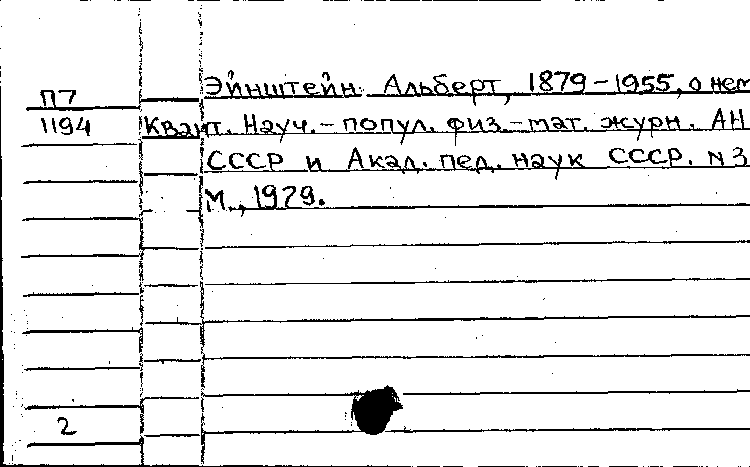 Эйнштейн Альберт, 1879-1955, о нем
П7
1194
Квант. Науч.-попул. физ.-мат. журн. АН
СССР и Акад. пед. наук СССР. N 3
М., 1979.
2